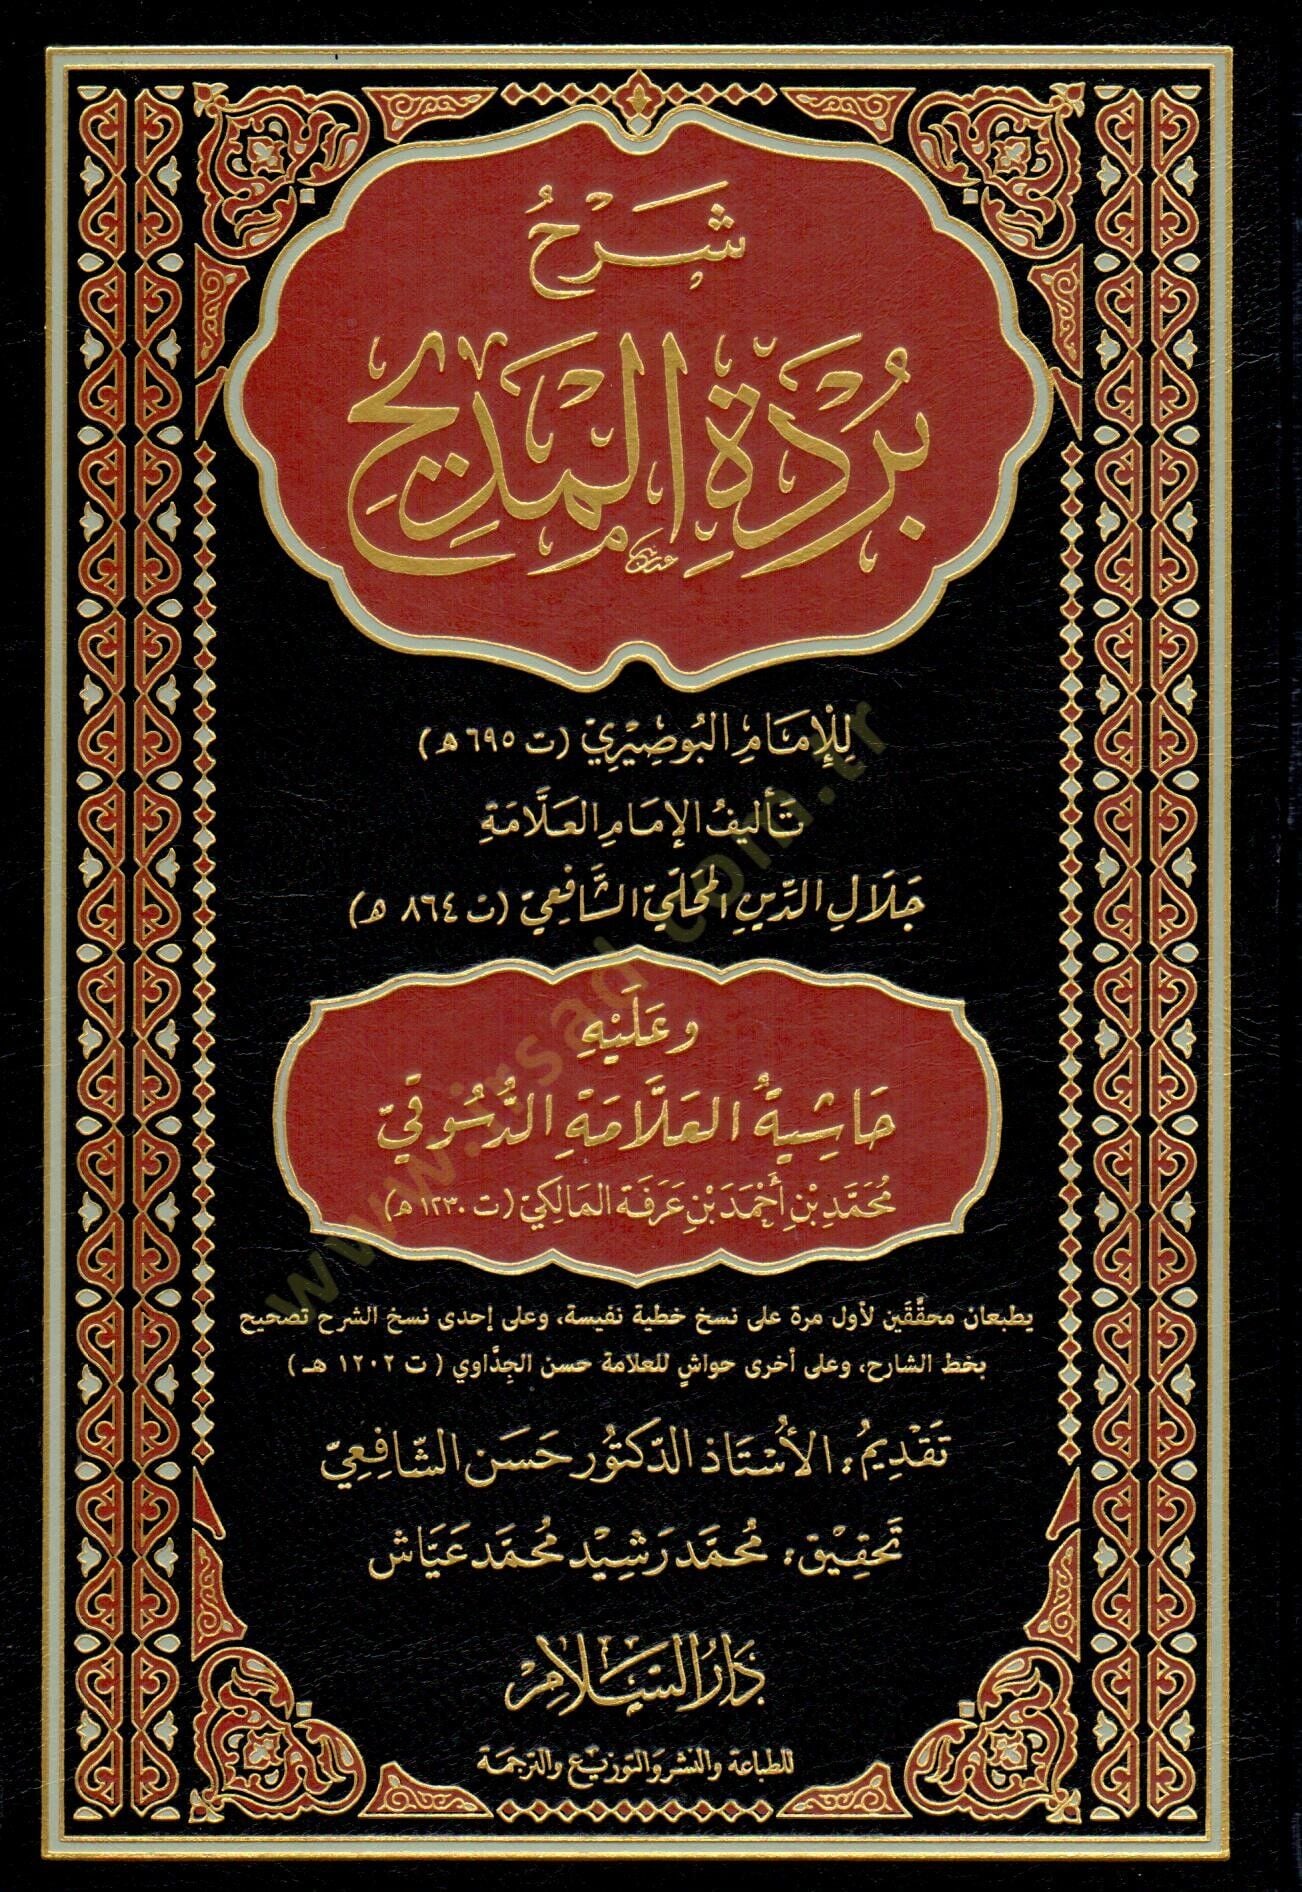 شَرْحُ
بُرْدَةِ الْمَدِيحِ
لِلْإِمَامِ البُوصِيرِيِّ (ت ٦٩٥ هـ)
تَأْلِيفُ الإِمَامِ العَلَّامَةِ
جَلَالِ الدِّينِ المَحَلِّيِّ الشَّافِعِيِّ (ت ٨٦٤ هـ)
وَعَلَيْهِ
حَاشِيَةُ العَلَّامَةِ الدُّسُوقِيِّ
مُحَمَّدِ بْنِ أَحْمَدَ بْنِ عَرَفَةَ المَالِكِيِّ (ت ١٢٣٠ هـ)
يطبعان محقَّقَين لأول مرة على نسخ خطية نفيسة، وعلى إحدى نسخ الشرح تصحيح
بخط الشارح، وعلى أخرى حواشٍ للعلامة حسن الجِدَّاوي ( ت ١٢٠٢ هـ )
تَقْدِيمُ: الأُسْتَاذِ الدّكتُور حَسَن الشَّافِعِيّ
تَحْقِيق: مُحَمَّد رَشِيْد مُحَمَّد عَيَّاش
دَارُ السَّلَامِ
للطباعة والنشر والتوزيع والترجمة
www.irsad.com.tr